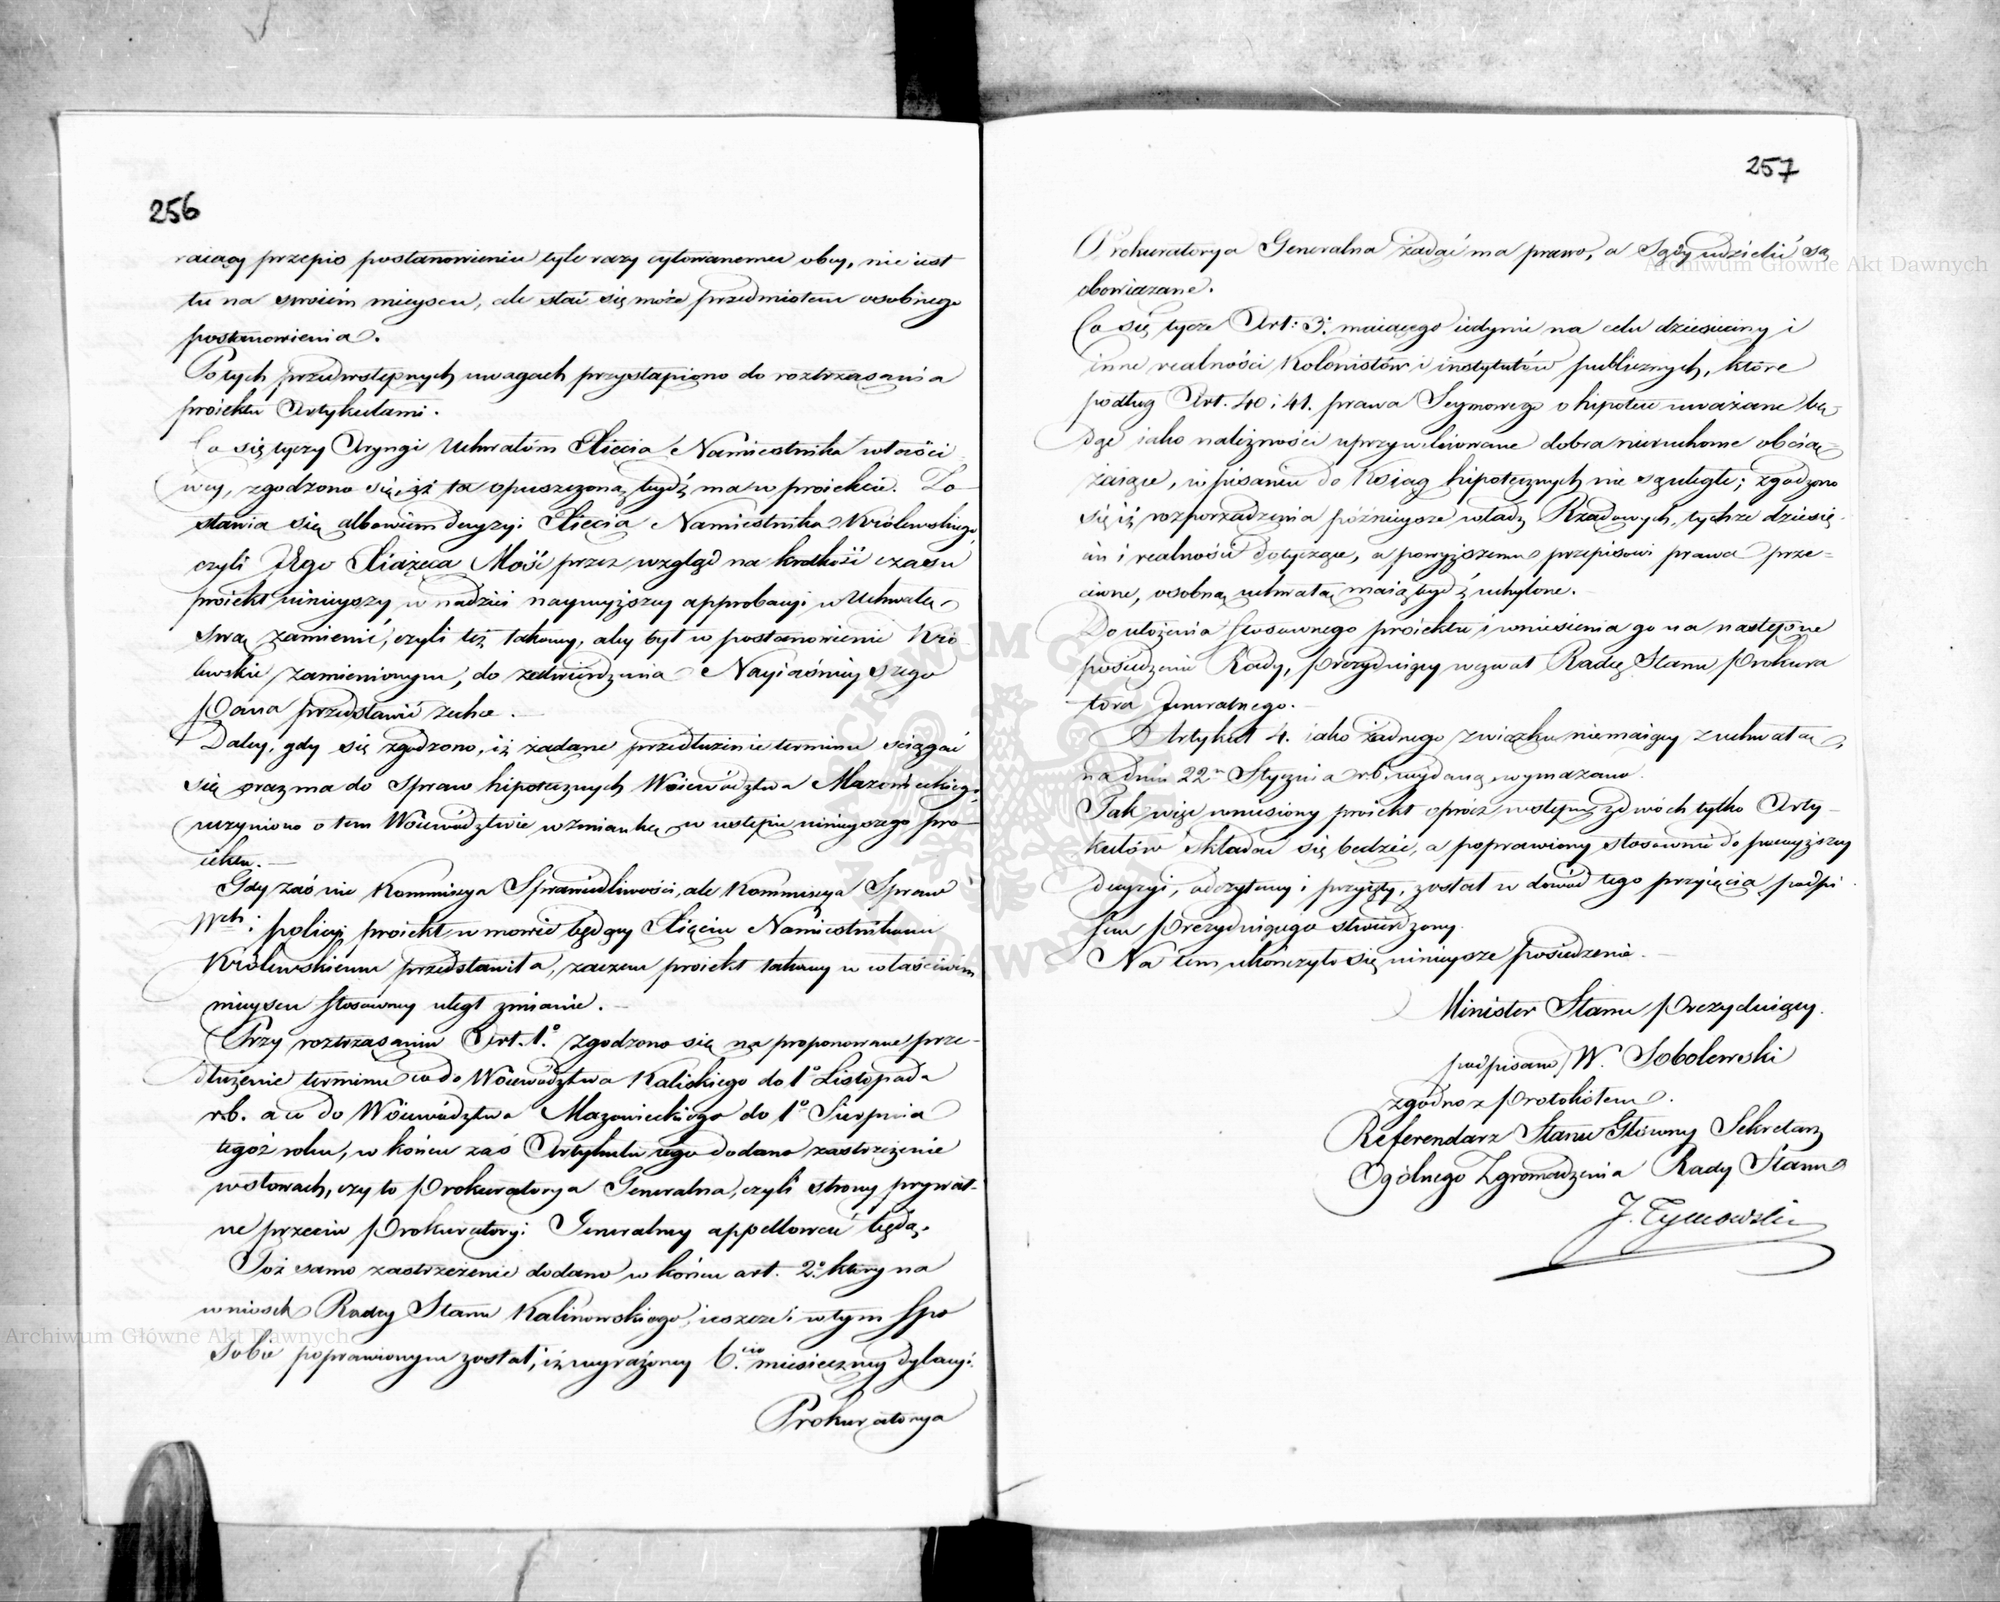 256
raiący przepis postanowieniu tyle razy cytowanemu obcy, nie iest
tu na swoiém mieyscu, ale stać się może przedmiotem osobnego
postanowienia.
Po tych przedwstępnych uwagach przystąpiono do roztrząsania
proiektu Artykułami.
Co się tyczy Aryngi Uchwałóm Xięcia Namiestnika właści
wey, zgodzono się, iż ta opuszczoną bydź ma w proiekcie. Zo-
stawia się albowiem decyzyi Xięcia Namiestnika Królewskiego,
czyli Jego Xiążęca Mość przez wzgląd na krótkość czasu
proiekt ninieyszy w nadziei naywyższey approbacyi w Uchwałę
swą zamienić, czyli też takowy, aby był w postanowienie Kró
lewskie zamienionym, do zatwierdzenia Nayiaśnieyszego
Pana przedstawić zechce. -
Daley, gdy się zgodzono, iż żądane przedłużenie terminu ściągać
się oraz ma do Spraw hipotecznych Woiewództwa Mazowieckiego,
uczyniono o tem Woiewództwie wzmiankę w wstępie ninieyszego pro-
iektu. -
Gdy zaś nie Kommissya Sprawiedliwości, ale Kommissya Spraw
Wch: i policyi proiekt w mowie będący Xięciu Namiestnikowi
Królewskiemu przedstawiła, zaczem proiekt takowy w właściwém
mieyscu stosowney uległ zmianie. -
Przy roztrząsaniu Art. 1º. zgodzono się na proponowane prze-
dłużenie terminu co do Woiewództwa Kaliskiego do 1º Listopada
rb. a co do Woiewództwa Mazowieckiego do 1º Sierpnia
tegoż roku, w końcu zaś Artykułu tego dodano zastrzeżenie
w słowach, czy to Prokuratorya Generalna, czyli strony prywat-
ne przeciw Prokuratoryi Generalney appellować będą.
Toż samo zastrzeżenie dodano w końcu art. 2º. który na
wniosek Radcy Stanu Kalinowskiego, ieszcze i w tym spo
sobie poprawionym został, iż wyrażoney 6.cio miesięczney dylacyi
Prokuratorya
257
Prokuratorya Generalna żądać ma prawo, a Sądy udzielić są
obowiązane.
Co się tycze Art: 3. maiącego iedynie na celu dziesięciny i
inne realności Kolonistów i instytutów publicznych, które
podług Art. 40 i 41. prawa Seymowego o hipotece uważane bę-
dąc iako należności uprzywileiowane dobra nieruchome obcią-
żaiące, wpisaniu do Ksiąg hipotecznych nie są uległe; zgodzono
się iż rozporządzenia późnieysze władz Rządowych, tychże dziesię-
cin i realności dotyczące, a powyższemu przepisowi prawa prze-
ciwne, osobną uchwałą maią bydź uchylone. -
Do ułożenia stosownego proiektu i wniesienia go na następne
posiedzenie Rady, Prezyduiący wezwał Radcę Stanu Prokura
tora Jeneralnego. -
Artykuł 4. iako żadnego związku niemaiący z uchwałą,
na dniu 22n Stycznia rb. wydaną, wymazano.
Tak więc wniesiony proiekt oprócz wstępu, z dwóch tylko Arty-
kułów składać się będzie, a poprawiony stosownie do powyższey
decyzyi, odczytany i przyięty, został w dowód tego przyięcia podpi
sem Prezyduiącego stwierdzony.
Na tem ukończyło się ninieysze posiedzenie. -
Minister Stanu Prezyduiący.
podpisano W. Sobolewski
zgodno z Protokółem.
Referendarz Stanu Główny Sekretarz
Ogólnego Zgromadzenia Rady Stanu
J. Tymowski
Archiwum Główne Akt Dawnych
Archiwum Główne Akt Dawnych
ARCHIWUM GŁÓWNE AKT DAWNYCH